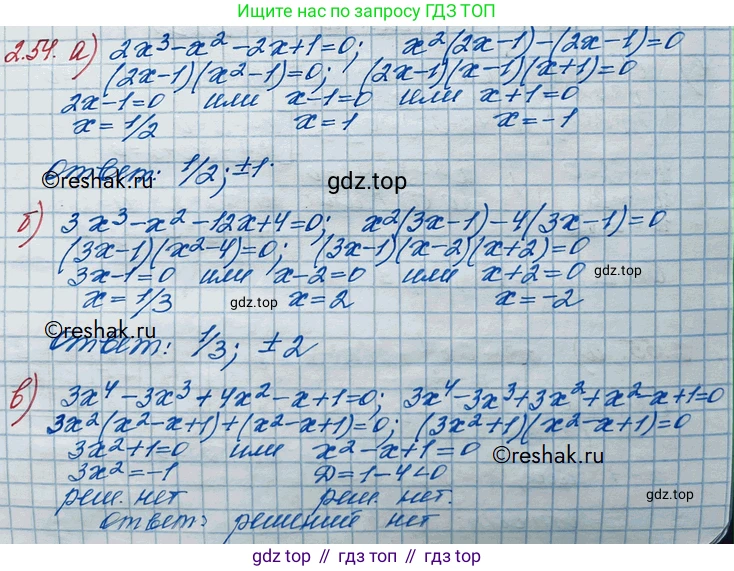 Ищите по запросу ГДЗ ТОП
2.54. а) 2x³-x²-2x+1=0; x²(2x-1)-(2x-1)=0
(2x-1)(x²-1)=0; (2x-1)(x-1)(x+1)=0
2x-1=0 или x-1=0 или x+1=0
x=1/2 x=1 x=-1
Ответ: 1/2; ±1.
©reshak.ru
gdz.top
б) 3x³-x²-12x+4=0; x²(3x-1)-4(3x-1)=0
(3x-1)(x²-4)=0; (3x-1)(x-2)(x+2)=0
3x-1=0 или x-2=0 или x+2=0
gdz.top
x=1/3 x=2 x=-2
gdz.top
©reshak.ru
Ответ: 1/3; ±2
в) 3x⁴-3x³+4x²-x+1=0; 3x⁴-3x³+3x²+x²-x+1=0
3x²(x²-x+1)+(x²-x+1)=0; (3x²+1)(x²-x+1)=0
3x²+1=0 или x²-x+1=0
3x²=-1 D=1-4<0
©reshak.ru
реш. нет реш. нет.
gdz.top
Ответ: решений нет
gdz.top // гдз топ // гдз.топ